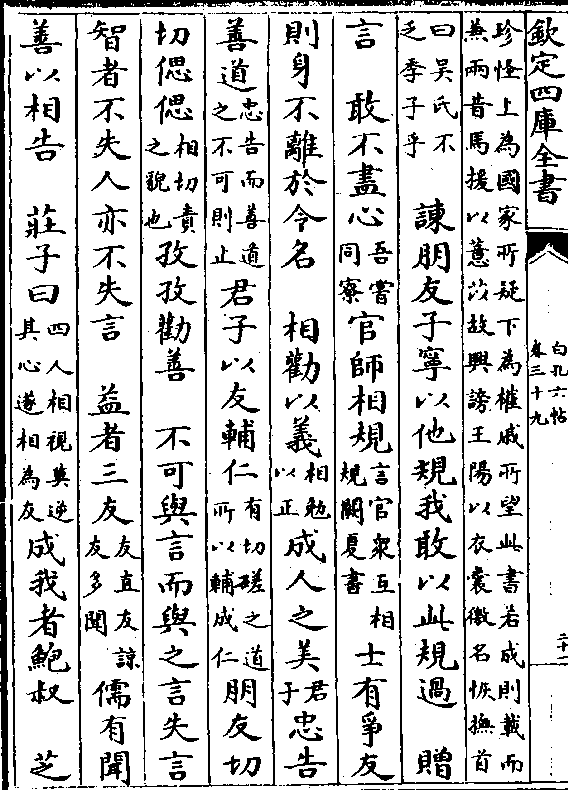 欽定四庫全書
白孔六帖
卷三十九
珍怪上為國家所疑下為權戚所望此書若成則載而
兼兩昔馬援以薏苡故興謗王陽以衣囊徼名恢撫首
曰吴氏不乏季子乎　諫朋友子寧以他規我敢以此規過　贈
言　敢不盡心吾嘗同寮官師相規言官衆互相規闕夏書士有爭友
則身不離於令名　相勸以義相勉以正成人之美君子忠告
善道忠告而善道之不可則止君子以友輔仁有切磋之道所以輔成仁朋友切
切偲偲相切責之貌也孜孜勸善　不可與言而與之言失言
智者不失人亦不失言　益者三友友直友諒友多聞儒有聞
善以相告　莊子曰四人相視莫逆其心遂相為友成我者鮑叔　芝